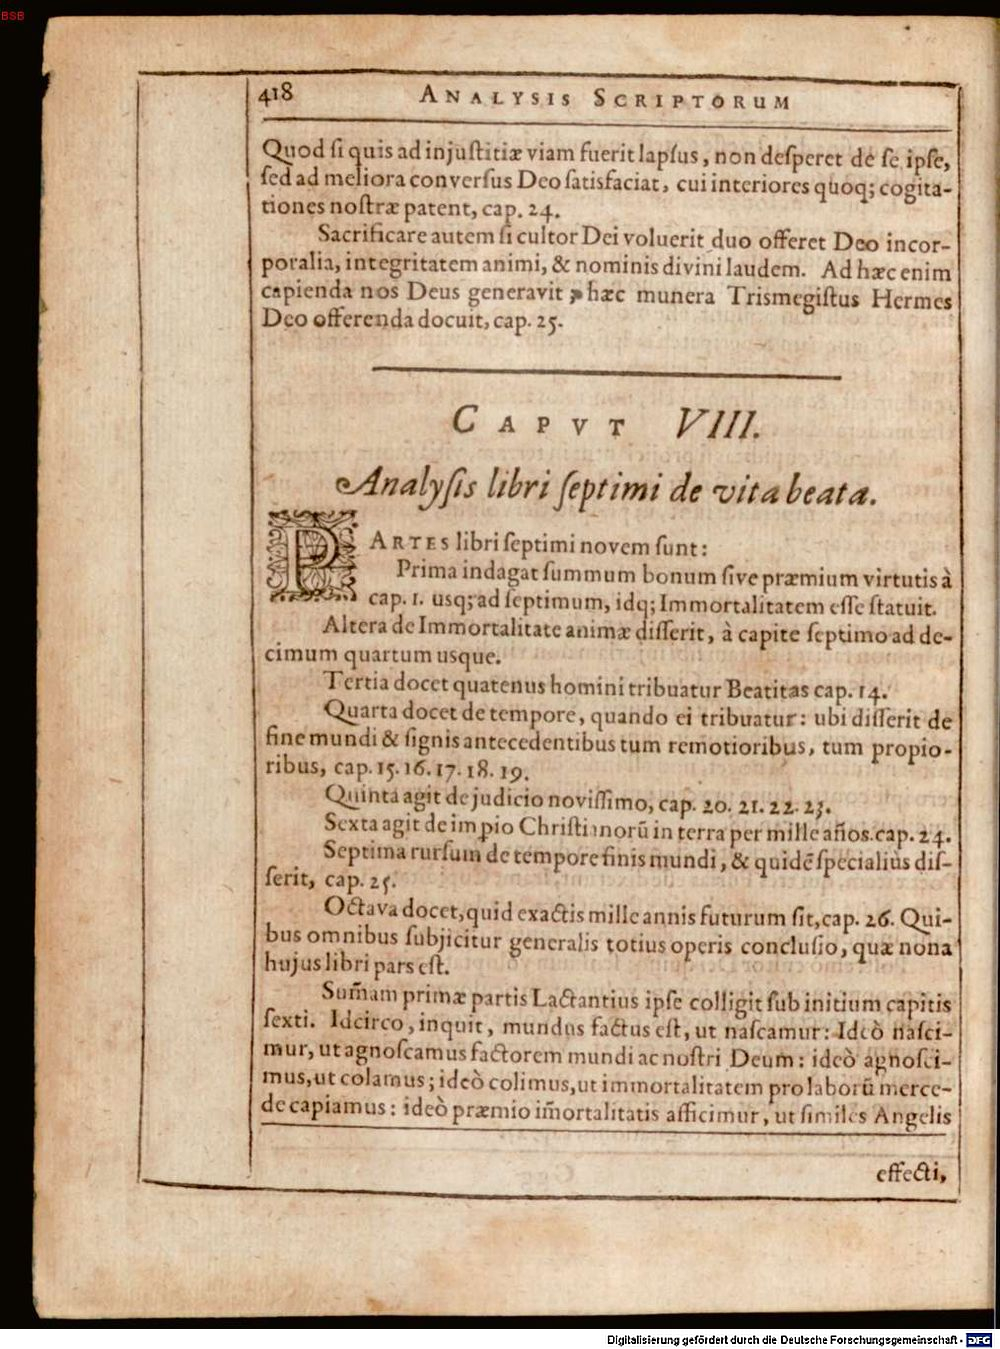 BSB
418 ANALYSIS SCRIPTORUM
Quod ſi quis ad injuſtitiæ viam fuerit lapſus, non deſperet de ſe ipſe,
ſed ad meliora converſus Deo ſatisfaciat, cui interiores quoq; cogita-
tiones noſtræ patent, cap. 24.
Sacrificare autem ſi cultor Dei voluerit duo offeret Deo incor-
poralia, integritatem animi, & nominis divini laudem. Ad hæc enim
capienda nos Deus generavit; hæc munera Trismegiſtus Hermes
Deo offerenda docuit, cap. 25.
CAPVT VIII.
Analyſis libri ſeptimi de vita beata.
PARTES libri ſeptimi novem ſunt:
Prima indagat ſummum bonum ſive præmium virtutis à
cap. 1. usq; ad ſeptimum, idq; Immortalitatem eſſe ſtatuit.
Altera de Immortalitate animæ diſſerit, à capite ſeptimo ad de-
cimum quartum usque.
Tertia docet quatenus homini tribuatur Beatitas cap. 14.
Quarta docet de tempore, quando ei tribuatur: ubi diſſerit de
fine mundi & ſignis antecedentibus tum remotioribus, tum propio-
ribus, cap. 15. 16. 17. 18. 19.
Quinta agit de judicio noviſſimo, cap. 20. 21. 22. 23.
Sexta agit de imꝑio Chriſtianorū in terra per mille años. cap. 24.
Septima rurſum de tempore finis mundi, & quidē ſpecialiùs diſ-
ſerit, cap. 25.
Octava docet, quid exactis mille annis futurum ſit, cap. 26. Qui-
bus omnibus ſubjicitur generalis totius operis concluſio, quæ nona
hujus libri pars eſt.
Sum̃am primæ partis Lactantius ipſe colligit ſub initium capitis
ſexti. Idcirco, inquit, mundus factus eſt, ut naſcamur: Ideò naſci-
mur, ut agnoſcamus factorem mundi ac noſtri Deum: ideò agnoſci-
mus, ut colamus; ideò colimus, ut immortalitatem pro laborū merce-
de capiamus: ideò præmio im̃ortalitatis afficimur, ut ſimiles Angelis
effecti,
Digitalisierung gefördert durch die Deutsche Forschungsgemeinschaft - DFG